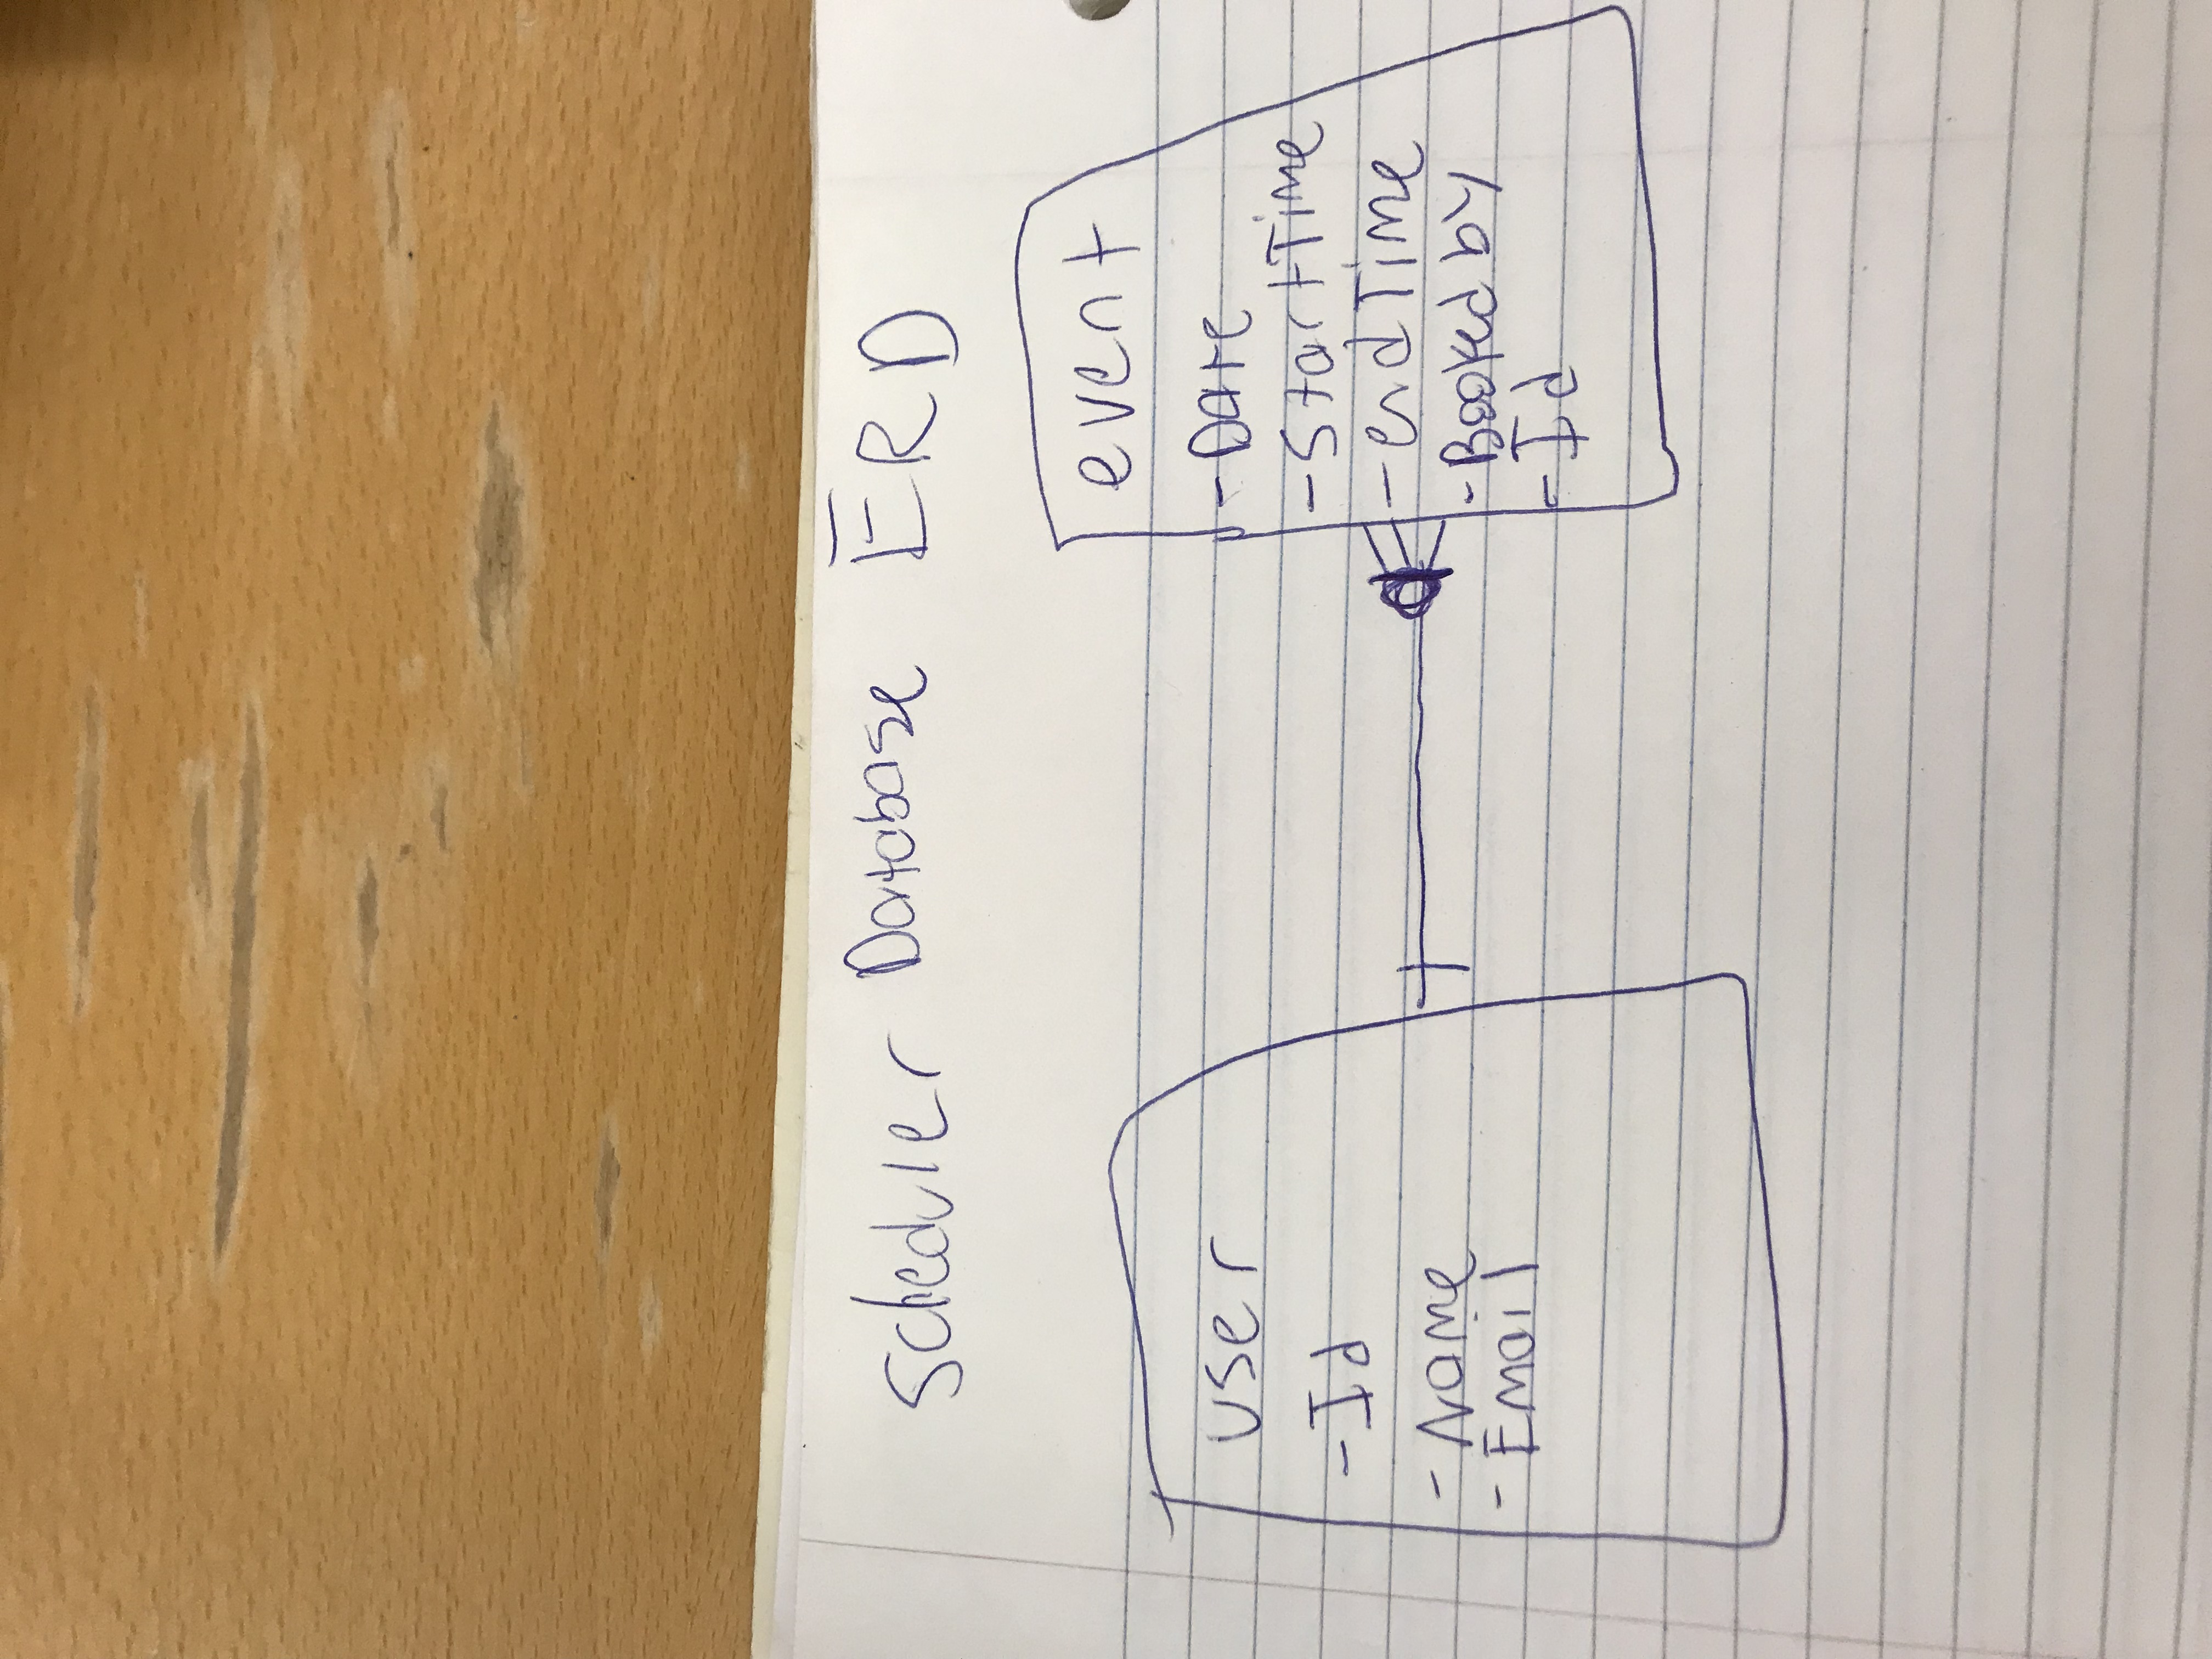 Scheduler Database ERD
user
- Id
- Name
- Email
event
- Date
- StartTime
- endTime
- Booked by
- Id